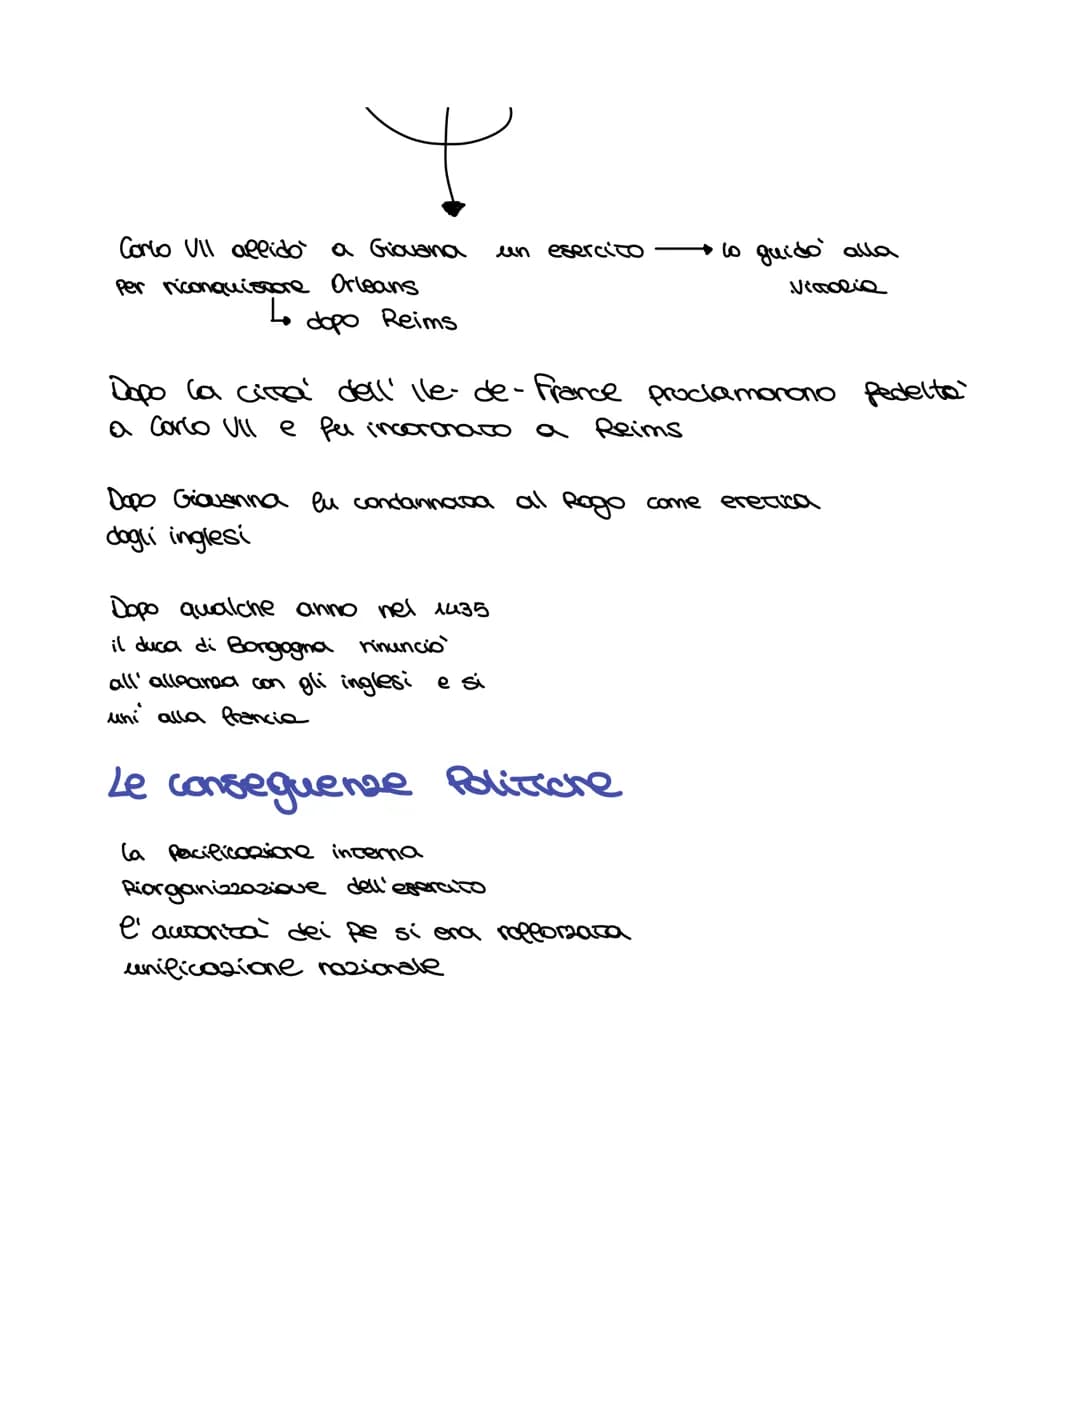 Carlo VII affidò a Giovanna un esercito → lo guidò alla
per riconquistare Orleans vittoria
↳ dopo Reims
Dopo la città dell' Ile-de-France proclamarono fedeltà
a Carlo VII e fu incoronato a Reims
Dopo Giovanna fu condannata al Rogo come eretica
dagli inglesi
Dopo qualche anno nel 1435
il duca di Borgogna rinunciò
all'alleanza con gli inglesi e si
unì alla francia
Le conseguenze Politiche
la pacificazione interna
Riorganizzazione dell'esercito
l'autorità dei Re si era rafforzata
unificazione nazionale